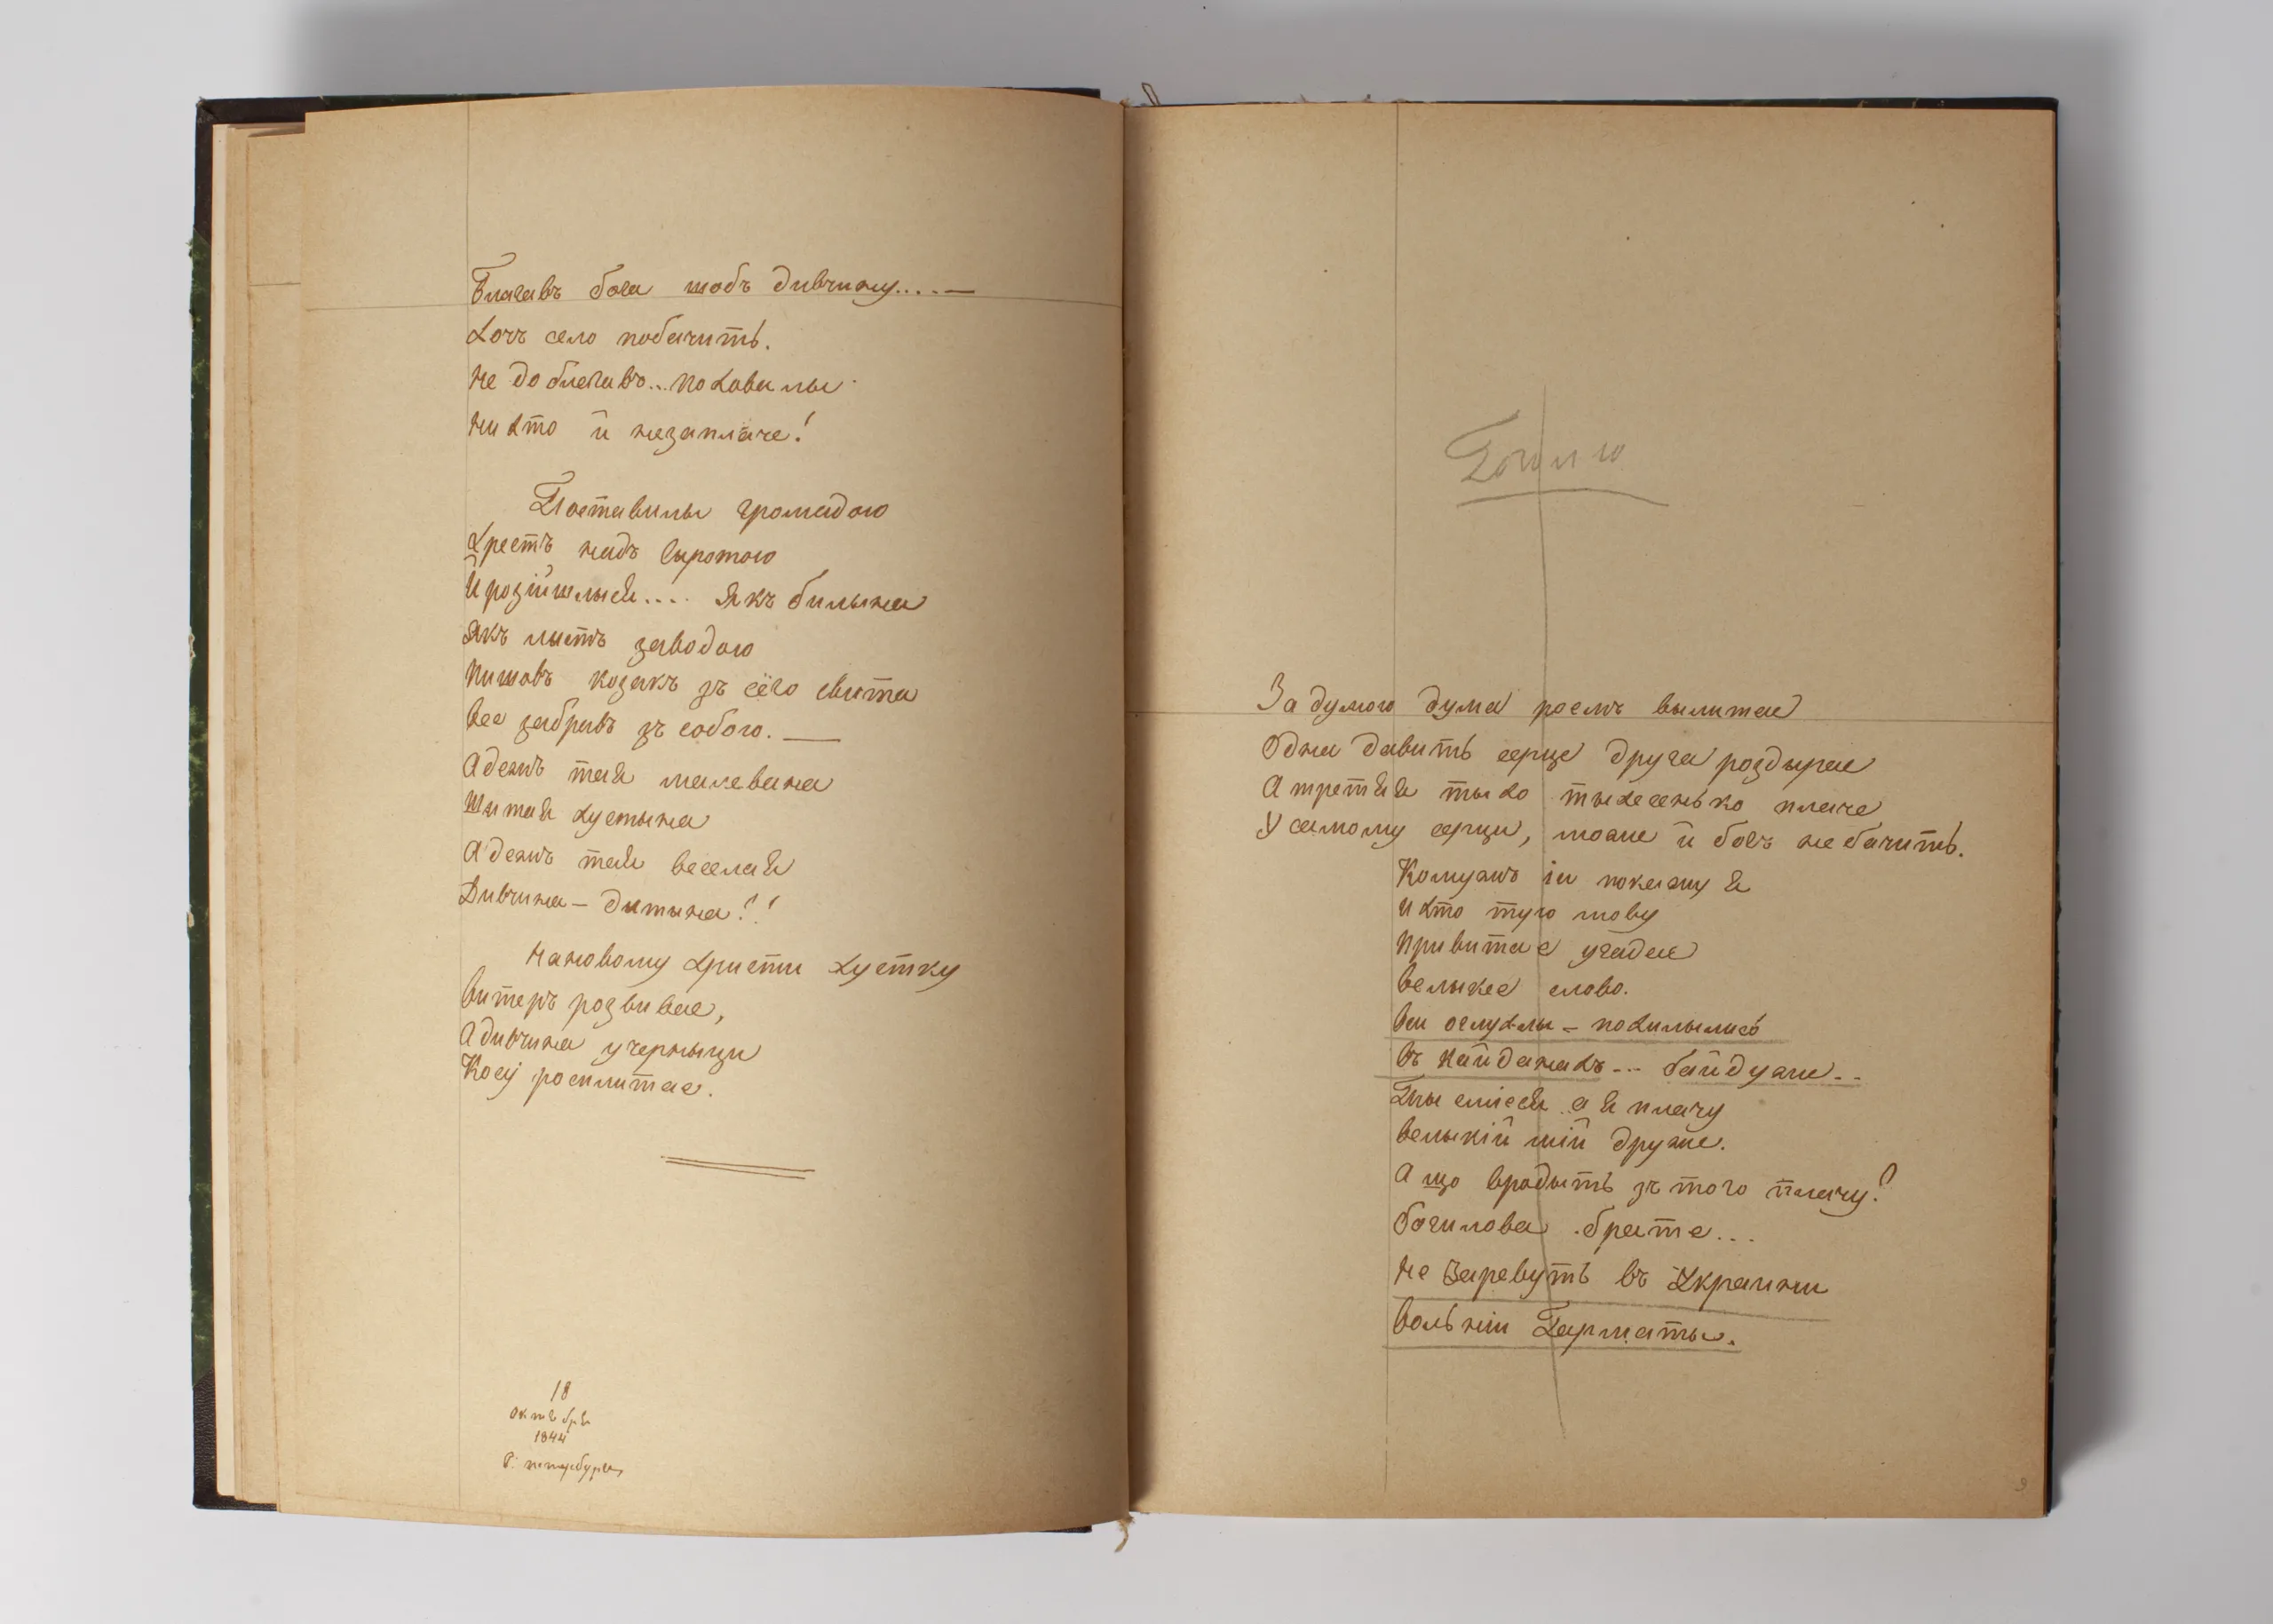 Благавъ бога щобъ дивчину....—
Хочъ село побачить.
Не до благавъ... поховалы
Ни хто й незаплаче!
Поставилы громадою
Хрестъ надъ Сыротою
Й розійшлыся.... Якъ билына
Якъ лыстъ заводою
Пишовъ козакъ зъ сёго свита
Все забравъ зъ собою. —
А дежъ тая малевана
Шитая хустына
А дежъ тая веселая
Дивчина — дитына?!
На новому христи хустку
Витеръ розвивае,
А дивчина у черныци
Косу росплитае.
18
Октября
1844
С. петербургъ
Гоголю
За думою дума роемъ вылитае
Одна давить серце друга роздырае
А третяя тыхо тыхесенько плаче
У самому серци, може й богъ не бачить.
Комужъ іи покажу я
И хто тую мову
Привитае угадае
Велыкее слово.
Вси оглухлы — похилылись
Въ кайданахъ... байдуже..
Ты сміеся а я плачу
Велыкій мій друже.
А що вродыть зъ того плачу?
Богилова брате...
Не заревуть въ Украини
Вольніи Гарматы.
9